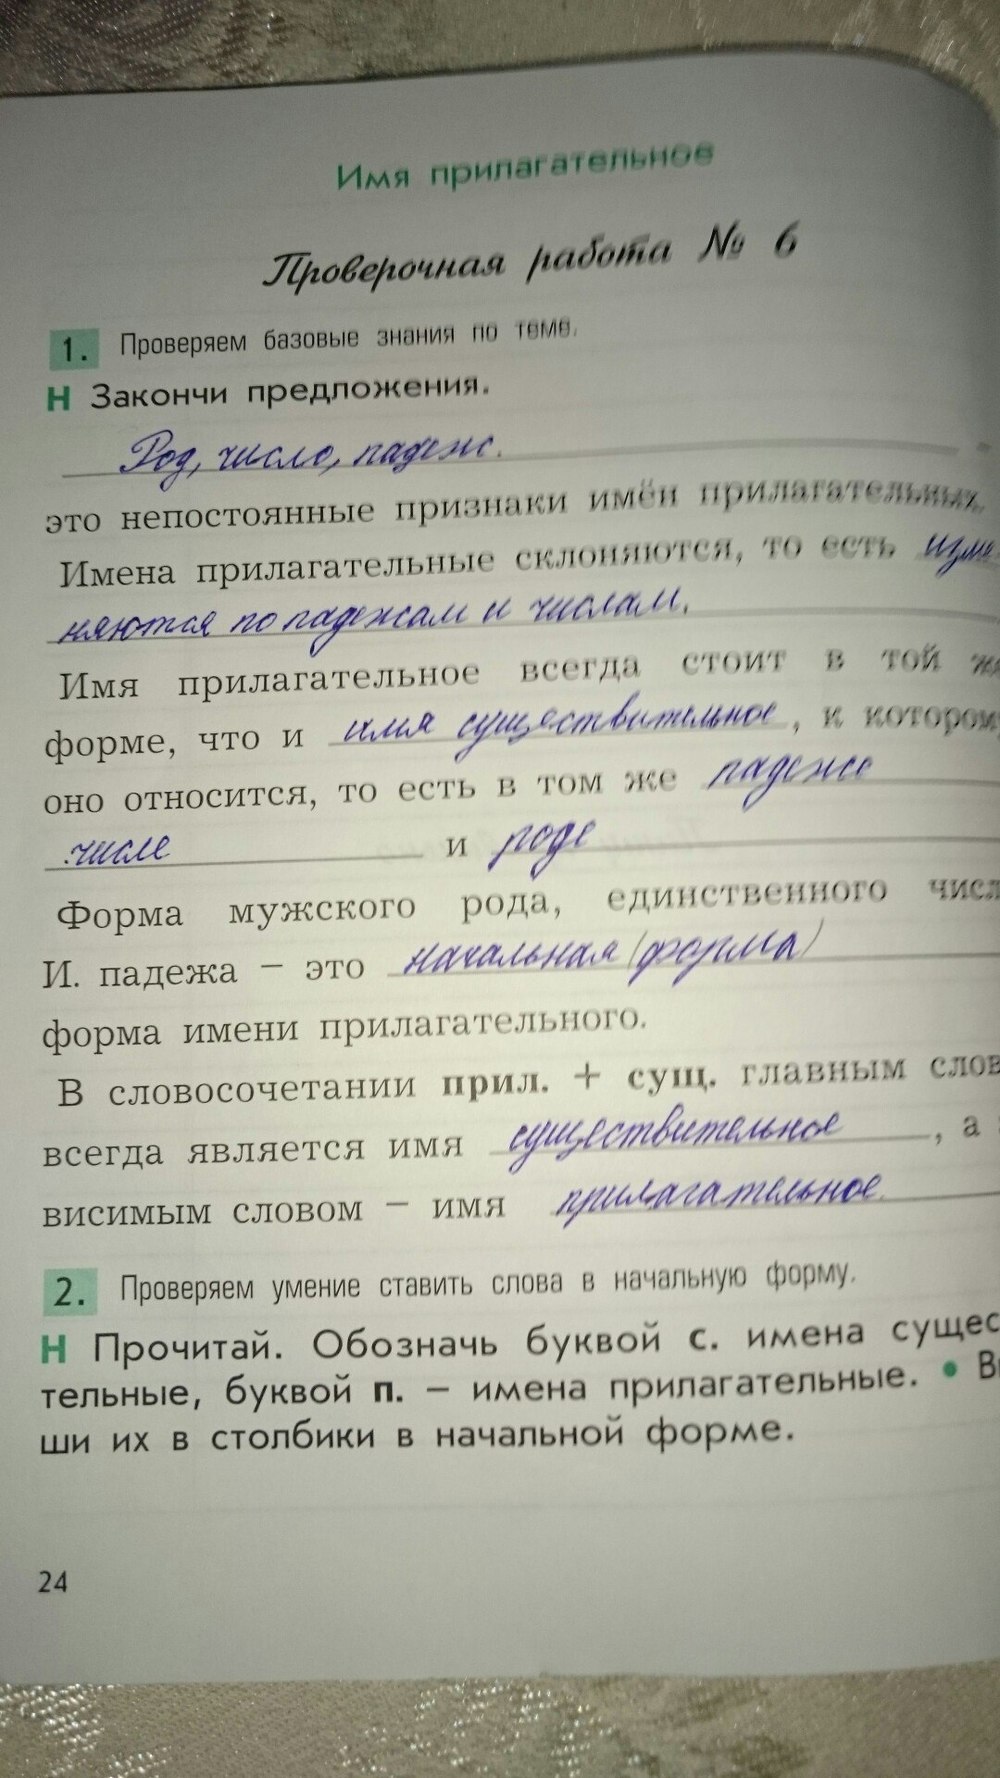 Имя прилагательное
Проверочная работа № 6
1. Проверяем базовые знания по теме.
Н Закончи предложения.
Род, число, падеж. -
это непостоянные признаки имён прилагательных.
Имена прилагательные склоняются, то есть изме
няются по падежам и числам.
Имя прилагательное всегда стоит в той же
форме, что и имя существительное, к котором
оно относится, то есть в том же падеже
числе и роде
Форма мужского рода, единственного числ
И. падежа – это начальная (форма)
форма имени прилагательного.
В словосочетании прил. + сущ. главным слов
всегда является имя существительное, а
висимым словом – имя прилагательное.
2. Проверяем умение ставить слова в начальную форму.
Н Прочитай. Обозначь буквой с. имена сущес
тельные, буквой п. – имена прилагательные. • В
ши их в столбики в начальной форме.
24